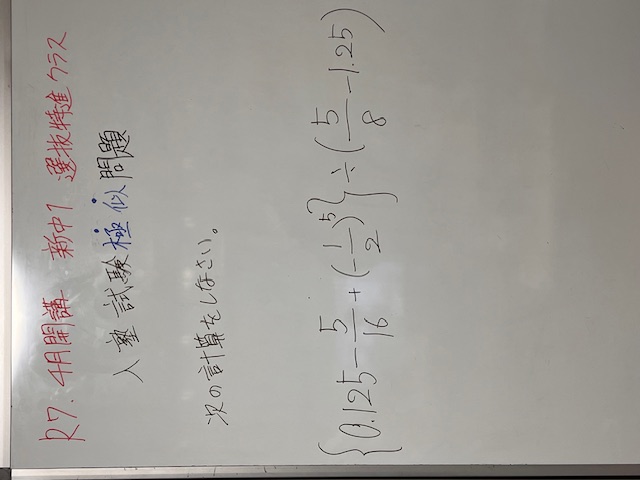 R7.4月開講 新中1 選抜特進クラス
入塾試験極似問題
次の計算をしなさい。
{0.125-5/16+(-1/2)^5}÷(5/8-1.25)